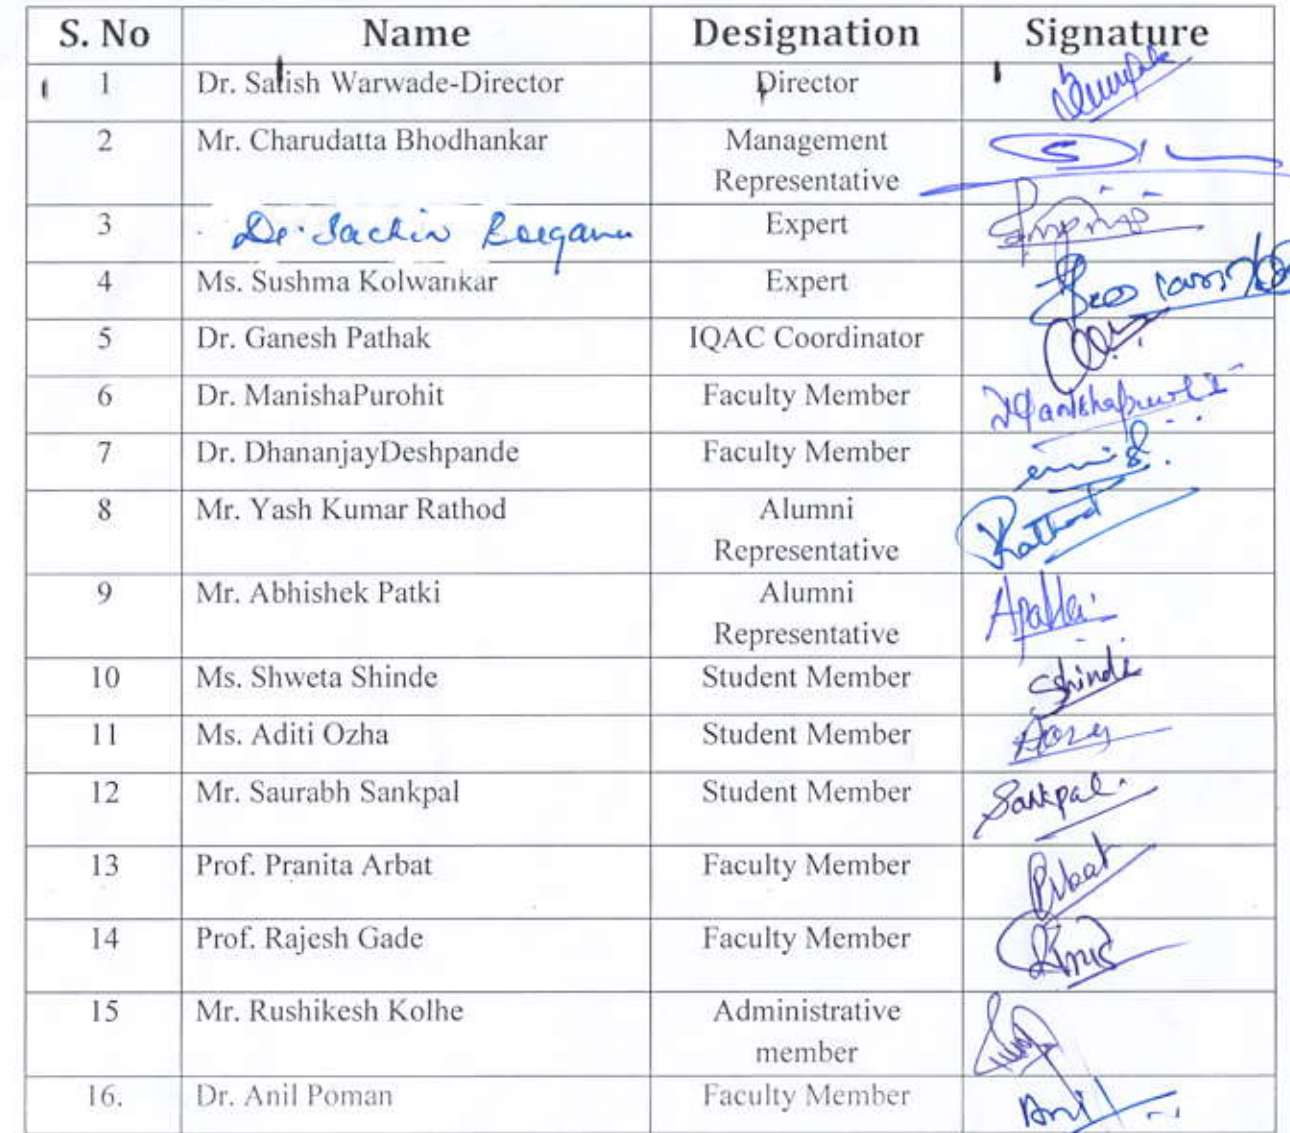 S. No Name Designation Signature
1 Dr. Satish Warwade-Director Director
2 Mr. Charudatta Bhodhankar Management
Representative
3 Dr. Sachin Expert
4 Ms. Sushma Kolwankar Expert
5 Dr. Ganesh Pathak IQAC Coordinator
6 Dr. ManishaPurohit Faculty Member
7 Dr. DhananjayDeshpande Faculty Member
8 Mr. Yash Kumar Rathod Alumni Rathod
Representative
9 Mr. Abhishek Patki Alumni
Representative
10 Ms. Shweta Shinde Student Member Shinde
11 Ms. Aditi Ozha Student Member
12 Mr. Saurabh Sankpal Student Member Sankpal
13 Prof. Pranita Arbat Faculty Member
14 Prof. Rajesh Gade Faculty Member
15 Mr. Rushikesh Kolhe Administrative
member
16. Dr. Anil Poman Faculty Member Anil